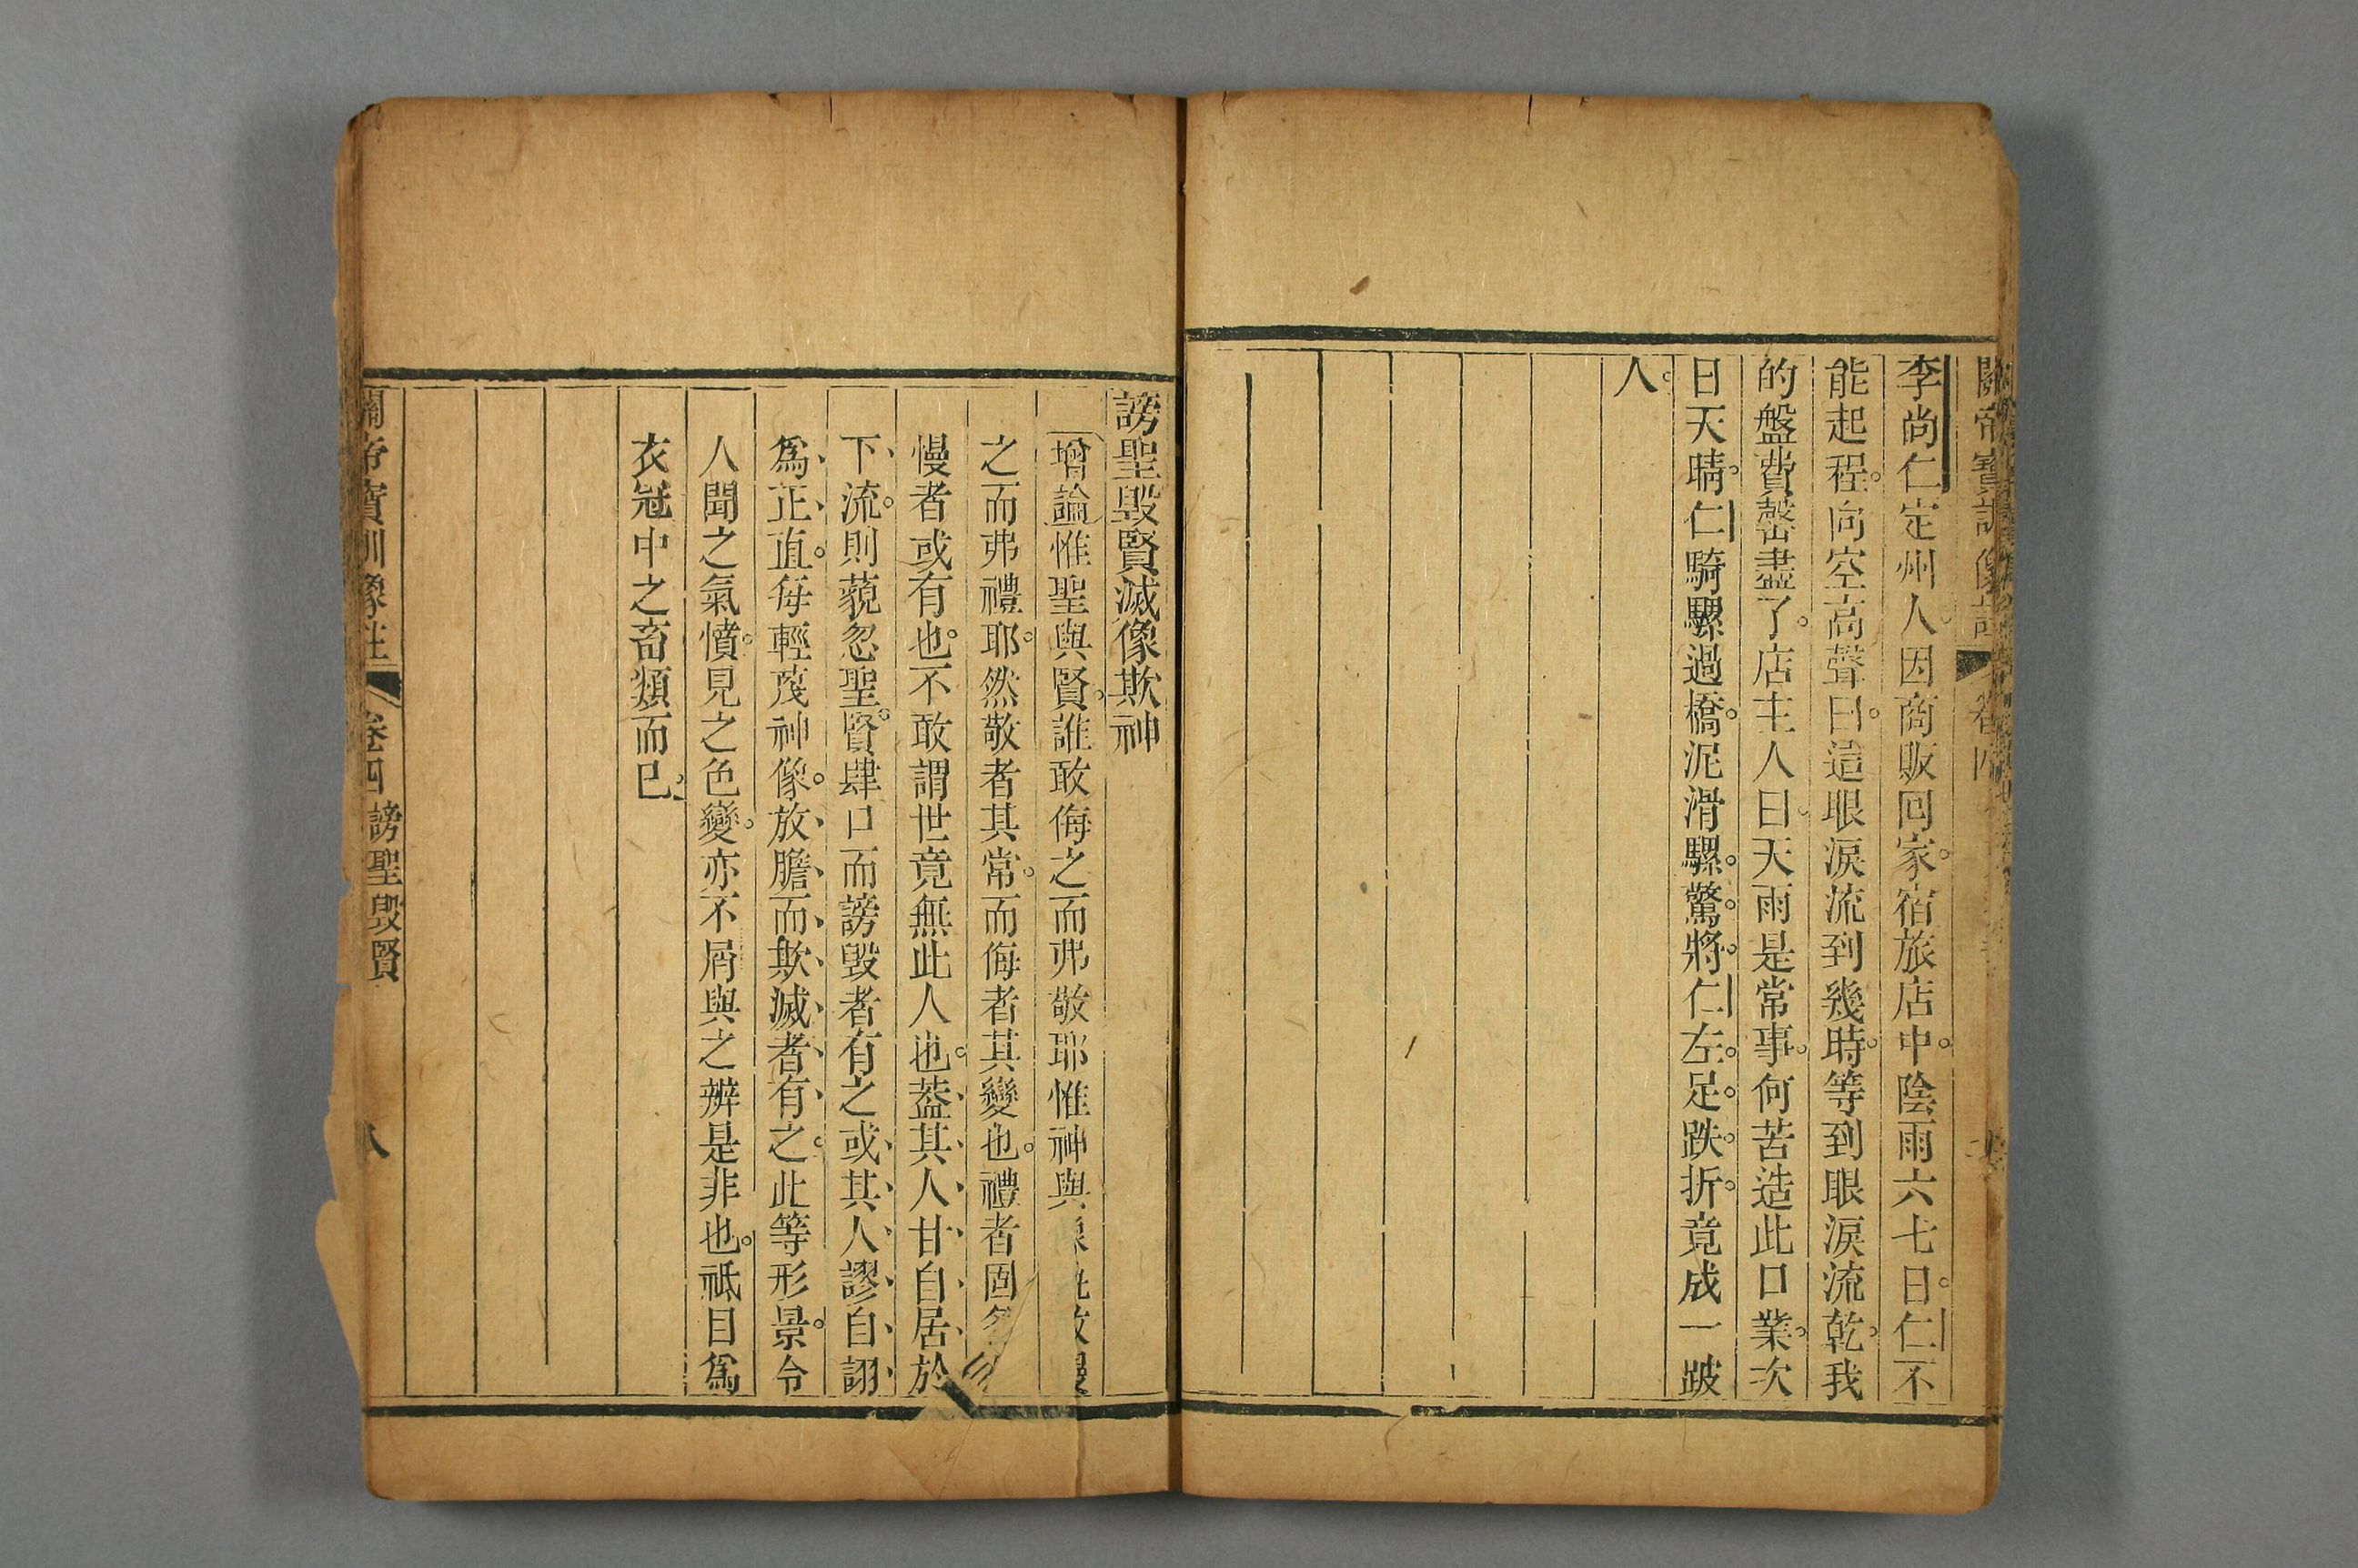 關帝寶訓像註 卷四
李尚仁定州人。因商販回家。宿旅店中。陰雨六七日。仁不
能起程。向空高聲曰。這眼淚流到幾時。等到眼淚流乾。我
的盤費罄盡了。店主人曰。天雨是常事。何苦造此口業。次
日天晴。仁騎騾過橋。泥滑騾。驚。將。仁左。足。跌。折。竟成一跛
人。
謗聖毀賢滅像欺神
增論惟聖與賢。誰敢侮之而弗敬耶惟神與
之而弗禮耶。然敬者其常。而侮者其變也。禮者固
慢者或有也。不敢謂世竟無此人也。蓋、其、人、甘、自、居、於
下、流。則藐忽聖賢。肆口而謗毀者有之或、其、人、謬、自、詡、
爲、正、直。每輕蔑神像。放、膽、而、欺、滅、者、有、之。此等形景。令
人聞之氣憤。見之色變。亦不屑與之辨是非也。祗目爲
衣冠中之畜類而已。
關帝寶訓像註 卷四 謗聖毀賢 八